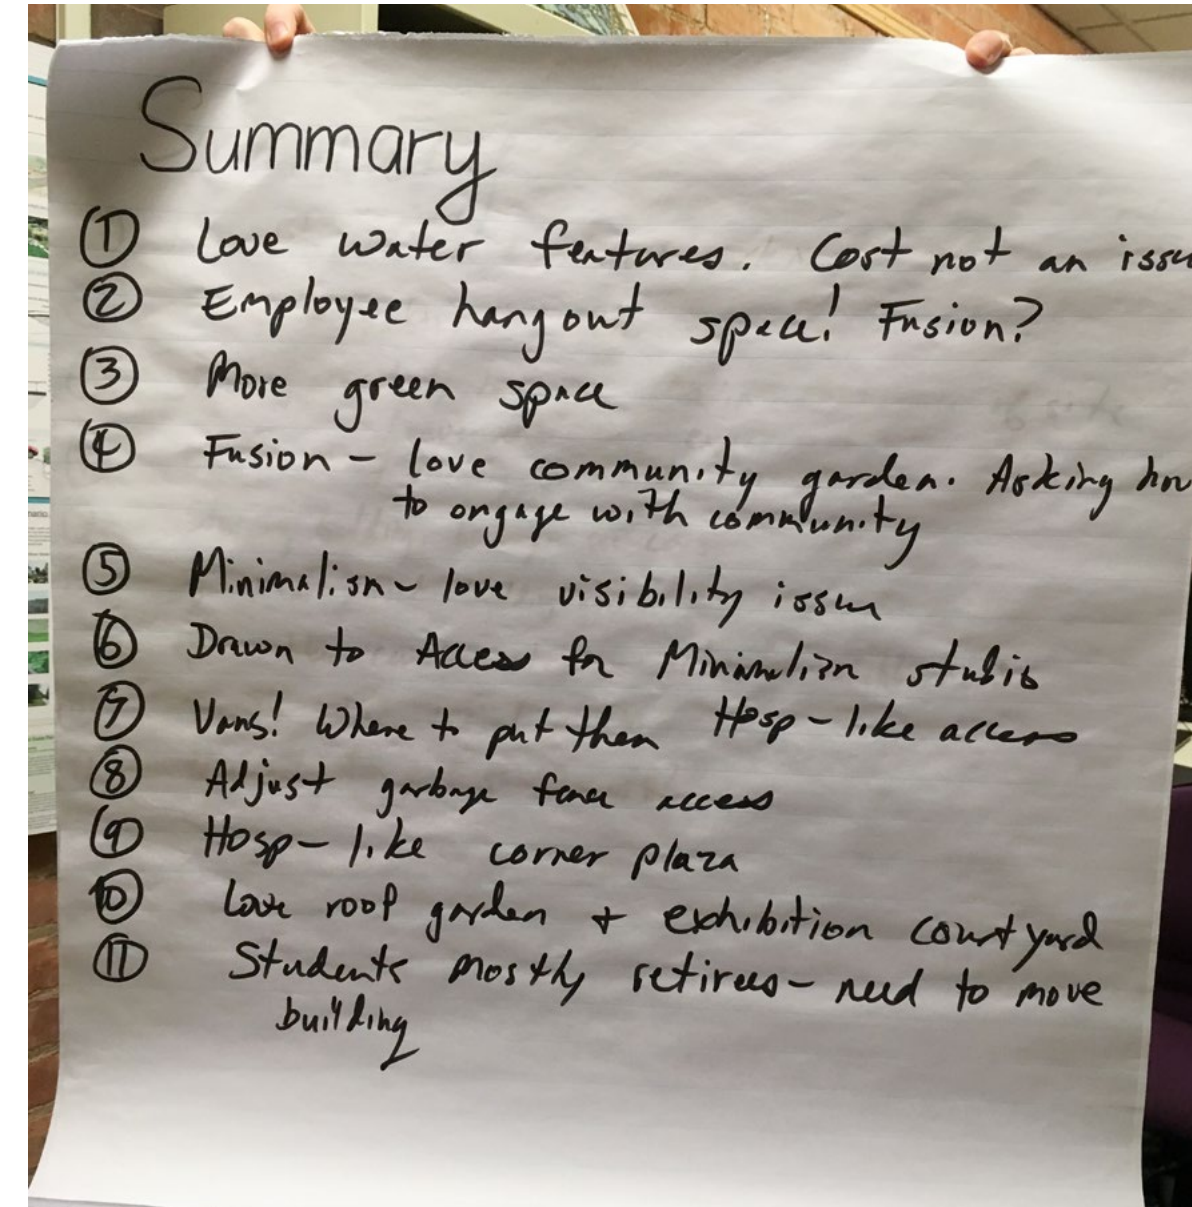 Summary
① Love water features. Cost not an issu
② Employee hangout space! Fusion?
③ More green space
④ Fusion – love community garden. Asking how
to engage with community
⑤ Minimalism – love visibility issue
⑥ Drawn to Access for Minimalism studio
⑦ Vans! Where to put them Hosp-like access
⑧ Adjust garbage fence access
⑨ Hosp-like corner plaza
⑩ Love roof garden + exhibition courtyard
⑪ Students mostly retirees – need to move
building